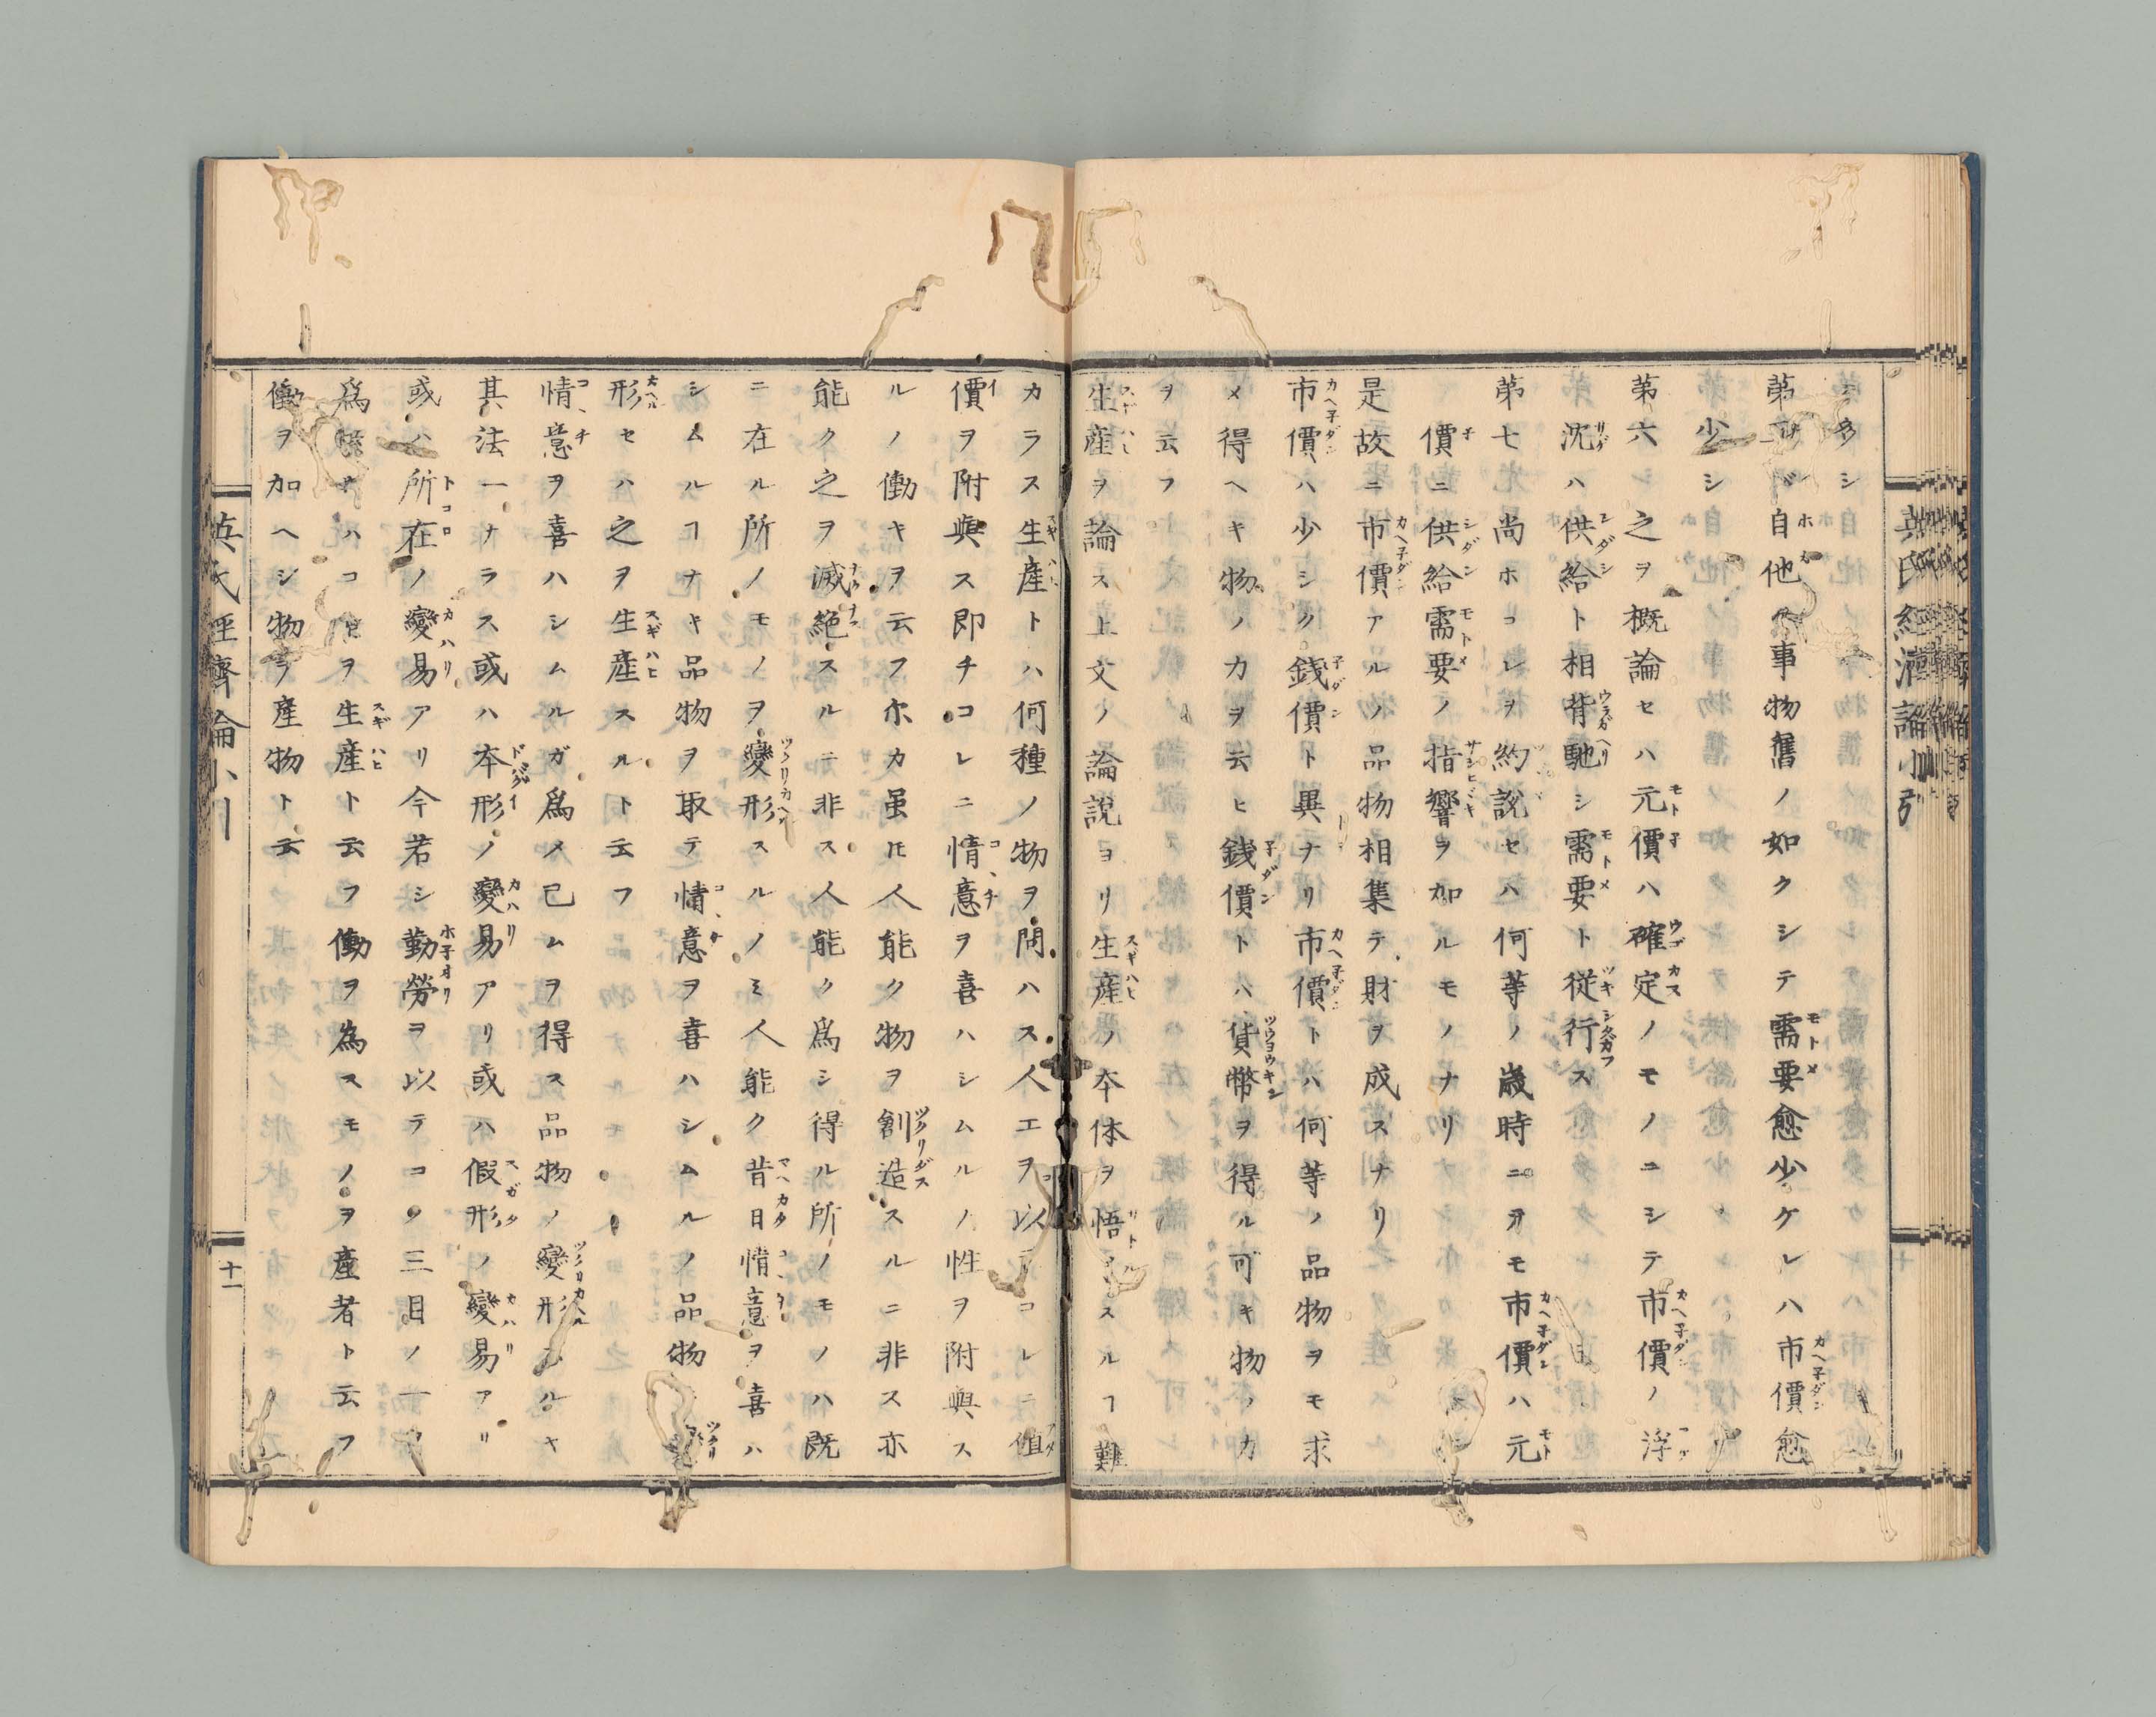 多シ
第五 自他ノ事物舊ノ如クシテ需要愈少ケレハ市價愈
少シ
第六 之ヲ概論セハ元價ハ確定ノモノニシテ市價ノ浮
沈ハ供給ト相背馳シ需要ト從行ス
第七 尚ホコレヲ約説セハ何等ノ歳時ニヲモ市價ハ元
價ニ供給需要ノ指響ヲ加ルモノナリ
是故ニ市價アルノ品物相集テ財ヲ成スナリ
市價ハ少シク錢價ト異ナリ市價トハ何等ノ品物ヲモ求
メ得ヘキ物ノカヲ云ヒ錢價トハ貨幣ヲ得ル可キ物ノカ
ヲ云フ
生産ヲ論ス上文ノ論説ヨリ生産ノ本体ヲ悟スルヿ難
カラス生産トハ何種ノ物ヲ問ハス人工ヲ以テコレニ値
價ヲ附與ス即チコレニ情意ヲ喜ハシムルノ性ヲ附與ス
ルノ働キヲ云フ尓カ虽𪜈人能ク物ヲ創造スルニ非ス亦
能ク之ヲ滅絶スルニ非ス人能ク爲シ得ル所ノモノハ既
ニ在ル所ノモノヲ變形スルノミ人能ク昔日情意ヲ喜ハ
シムルヿナキ品物ヲ取テ情意ヲ喜ハシムルノ品物
形セハ之ヲ生産スルト云フ
情意ヲ喜ハシムルガ爲メ已ムヲ得ス品物ノ變形スルヤ
其法一ナラス或ハ本形ノ變易アリ或ハ假形ノ變易アリ
或ハ所在ノ變易アリ今若シ勤勞ヲ以テコノ三目ノ一
爲 ハコレヲ生産ト云フ働ヲ為スモノヲ產者ト云フ
働ヲ加ヘシ物ヲ産物ト云
英氏經濟論小引
十一